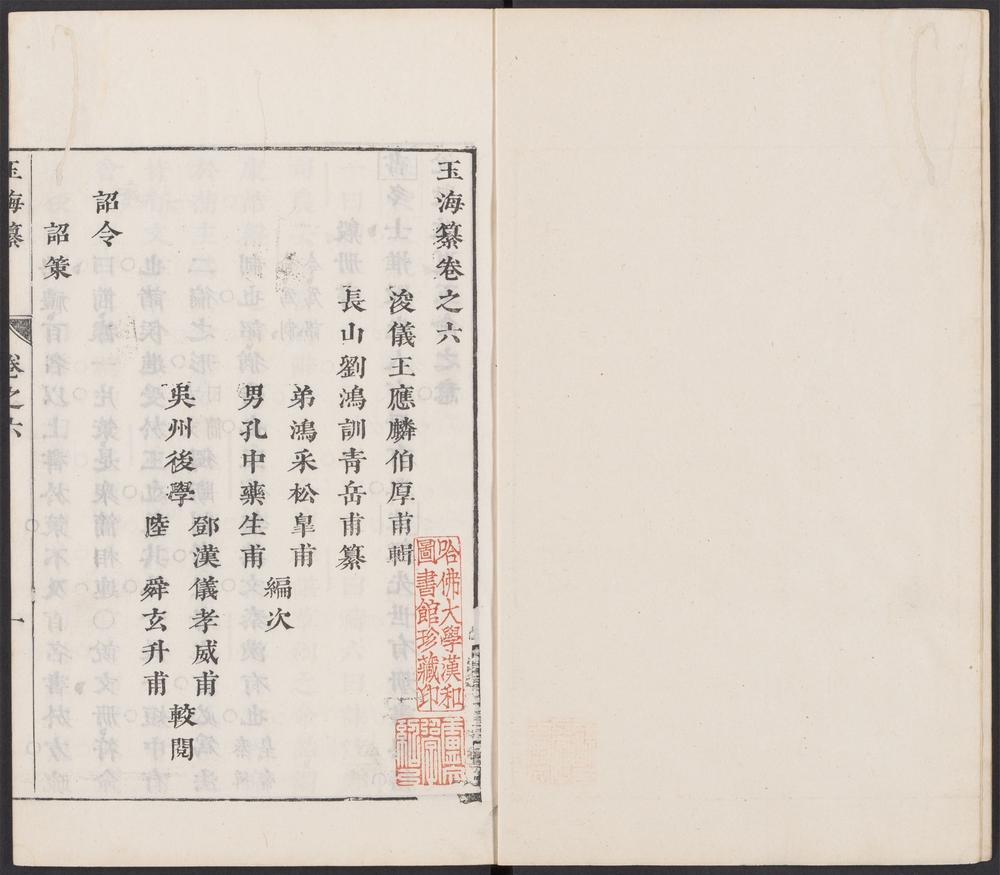 玉海纂卷之六
浚儀王應麟伯厚甫輯
長山劉鴻訓青岳甫纂
弟鴻采松皐甫
男孔中藥生甫
編次
吳州後學
鄧漢儀孝威甫
陸舜玄升甫
較閱
詔令
詔策
玉海纂
卷之六
一
哈佛大學漢和
圖書館珍藏印